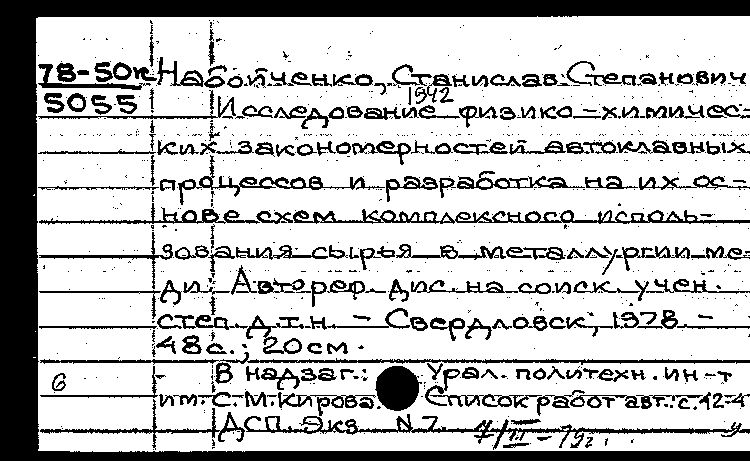 78-50к Набойченко, Станислав Степанович
5055 1942
Исследование физико-химичес-
ких закономерностей автоклавных
процессов и разработка на их ос-
нове схем комплексного исполь-
зования сырья в металлургии ме-
ди: Автореф. дис. на соиск. учен.
степ. д.т.н. - Свердловск, 1978. -
48с.; 20см.
6 В надзаг.: Урал. политехн. ин-т
им. С.М.Кирова. Список работ авт.: с.42-4
ДСП. Экз N 7.